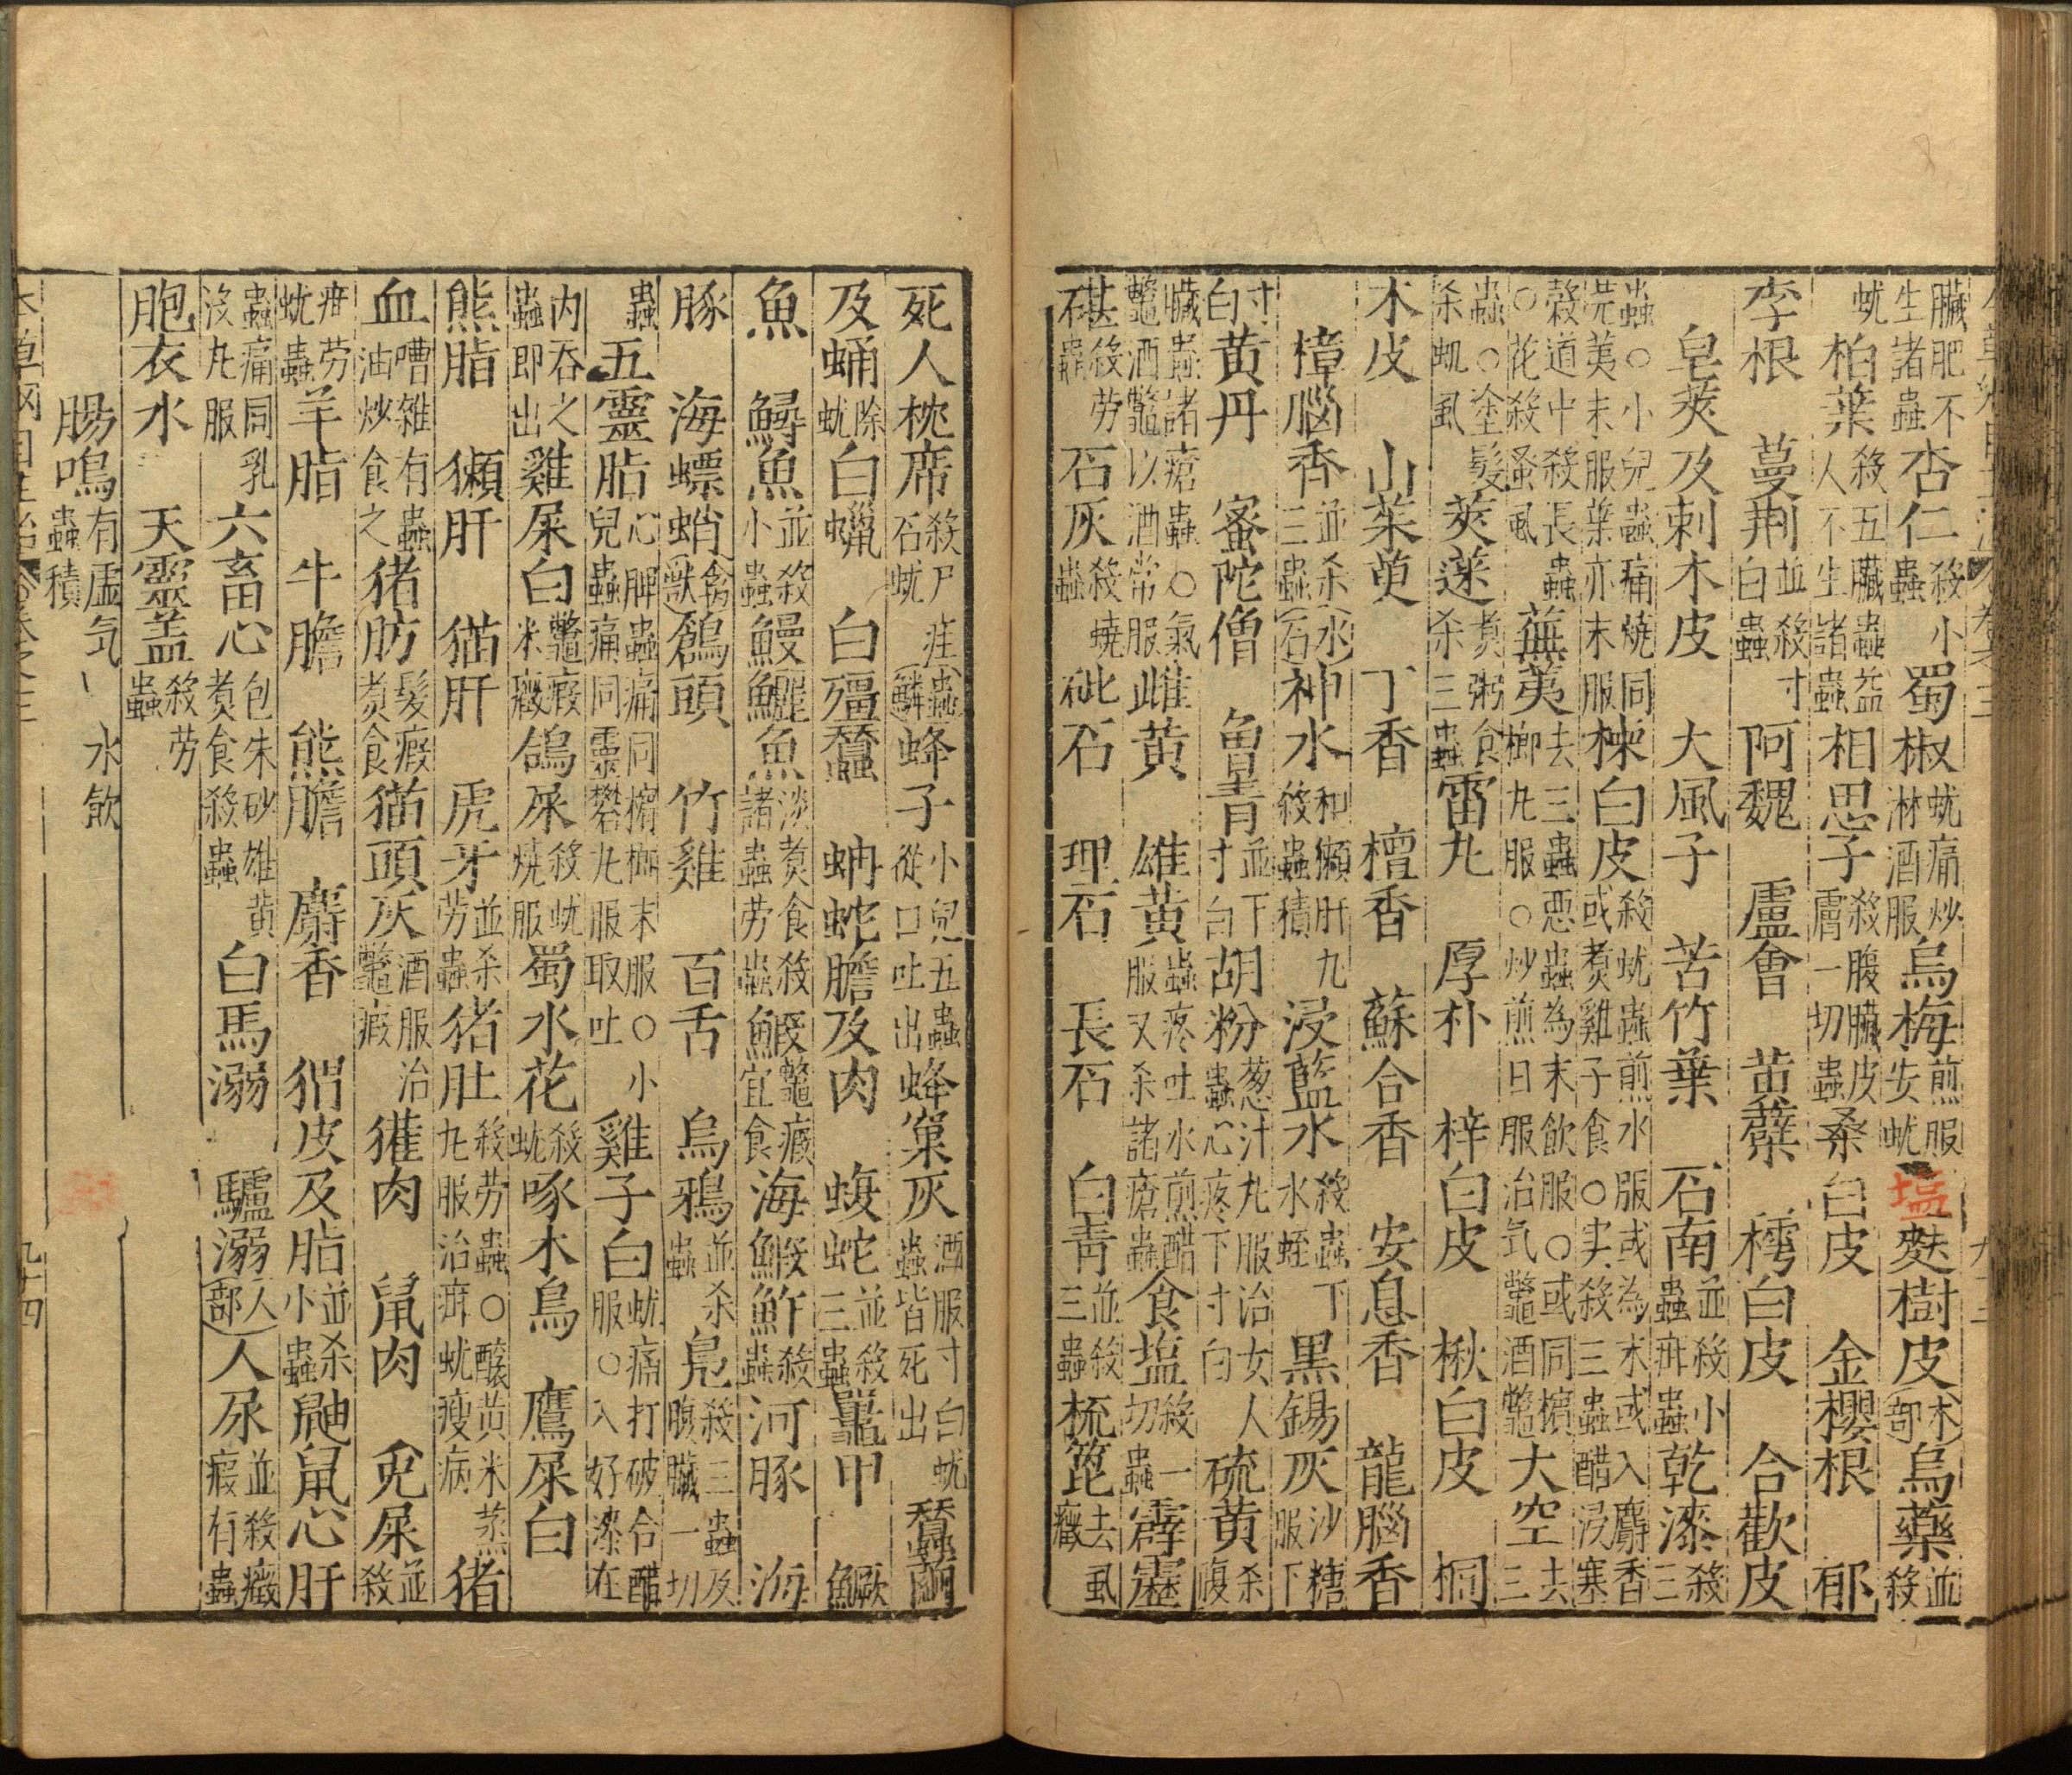 臟肥不生諸蟲杏仁殺小蟲蜀椒蚘痛炒淋酒服烏梅煎服安蚘塩麩樹皮木部烏藥並殺
蚘柏葉殺五臟蟲益人不生諸蟲相思子殺腹臟皮膚一切蟲桑白皮 金櫻根 郁
李根 蔓荆並殺寸白蟲阿魏 盧會 黄蘗 樗白皮 合歡皮
皂莢及刺木皮 大風子 苦竹葉 石南並殺小蟲疳蟲乾漆殺三
蟲○小兒蟲痛燒同荑末服葉亦末服楝白皮殺蚘蟲煎水服或為末或入麝香或煮雞子食○実殺三蟲醋浸塞
穀道中殺長蟲○花殺蚤虱蕪荑去三蟲惡蟲為末飲服○或同檳榔丸服○炒煎日服治気鼈酒鼈大空去三
蟲○塗髮杀虮虱莢蒾煮粥食杀三蟲雷丸 厚朴 梓白皮 楸白皮 桐
木皮 山茱萸 丁香 檀香 蘇合香 安息香 龍腦香
樟腦香並杀三蟲水石神水和獺肝丸殺蟲積浸藍水殺蟲下水蛭黒錫灰沙糖服下
寸白黄丹 蜜陀僧 曽青並下寸白胡粉葱汁丸服治女人蟲心疼下寸白硫黄杀腹
臟蟲諸瘡蟲○氣鼈酒鼈以酒常服雌黄 雄黄蟲疼吐水煎醋服又杀諸瘡蟲食塩殺一切蟲霹靂
碪殺劳蟲石灰殺蟯蟲砒石 理石 長石 白青並殺三蟲梳篦去虱癥
死人枕席殺尸疰石蚘蟲鱗蜂子小兒五蟲從口吐出蜂窠灰酒服寸白蚘蟲皆死出蠶繭
及蛹除蚘白蠟 白殭蠶 蚺蛇膽及肉 蝮蛇並殺三蟲鼉甲 鱖
魚 鱘魚並殺小蟲鰻鱺魚淡煮食殺諸蟲劳蟲鰕鼈癥宜食海鰕鮓殺蟲河豚 海
豚 海螵蛸禽獣頭 竹雞 百舌 烏鴉並杀蟲鳬殺三蟲及腹臟一切
蟲五靈脂心脾蟲痛同檳榔末服○小兒蟲痛同靈礬丸服取吐雞子白蚘痛打破合醋服○入好漆在
内吞之蟲即出雞屎白鼈瘕米癥鴿屎殺蚘燒服蜀水花殺蚘啄木鳥 鷹屎白
熊脂 獺肝 猫肝 虎牙並杀劳蟲猪肚殺劳蟲○釀黄米蒸丸服治疳蚘瘦病猪
血嘈雑有蟲油炒食之猪肪髮瘕煮食猫頭灰酒服治鼈瘕獾肉 鼠肉 兎屎並殺
疳劳蚘蟲羊脂 牛膽 熊膽 麝香 猬皮及脂並杀小蟲鼬鼠心肝
蟲痛同乳没丸服六畜心包朱砂雄黄煮食殺蟲白馬溺 驢溺人部人尿並殺癥瘕有蟲
胞衣水 天靈盖殺劳蟲
腸鳴有虚気、水飲蟲積
九十四